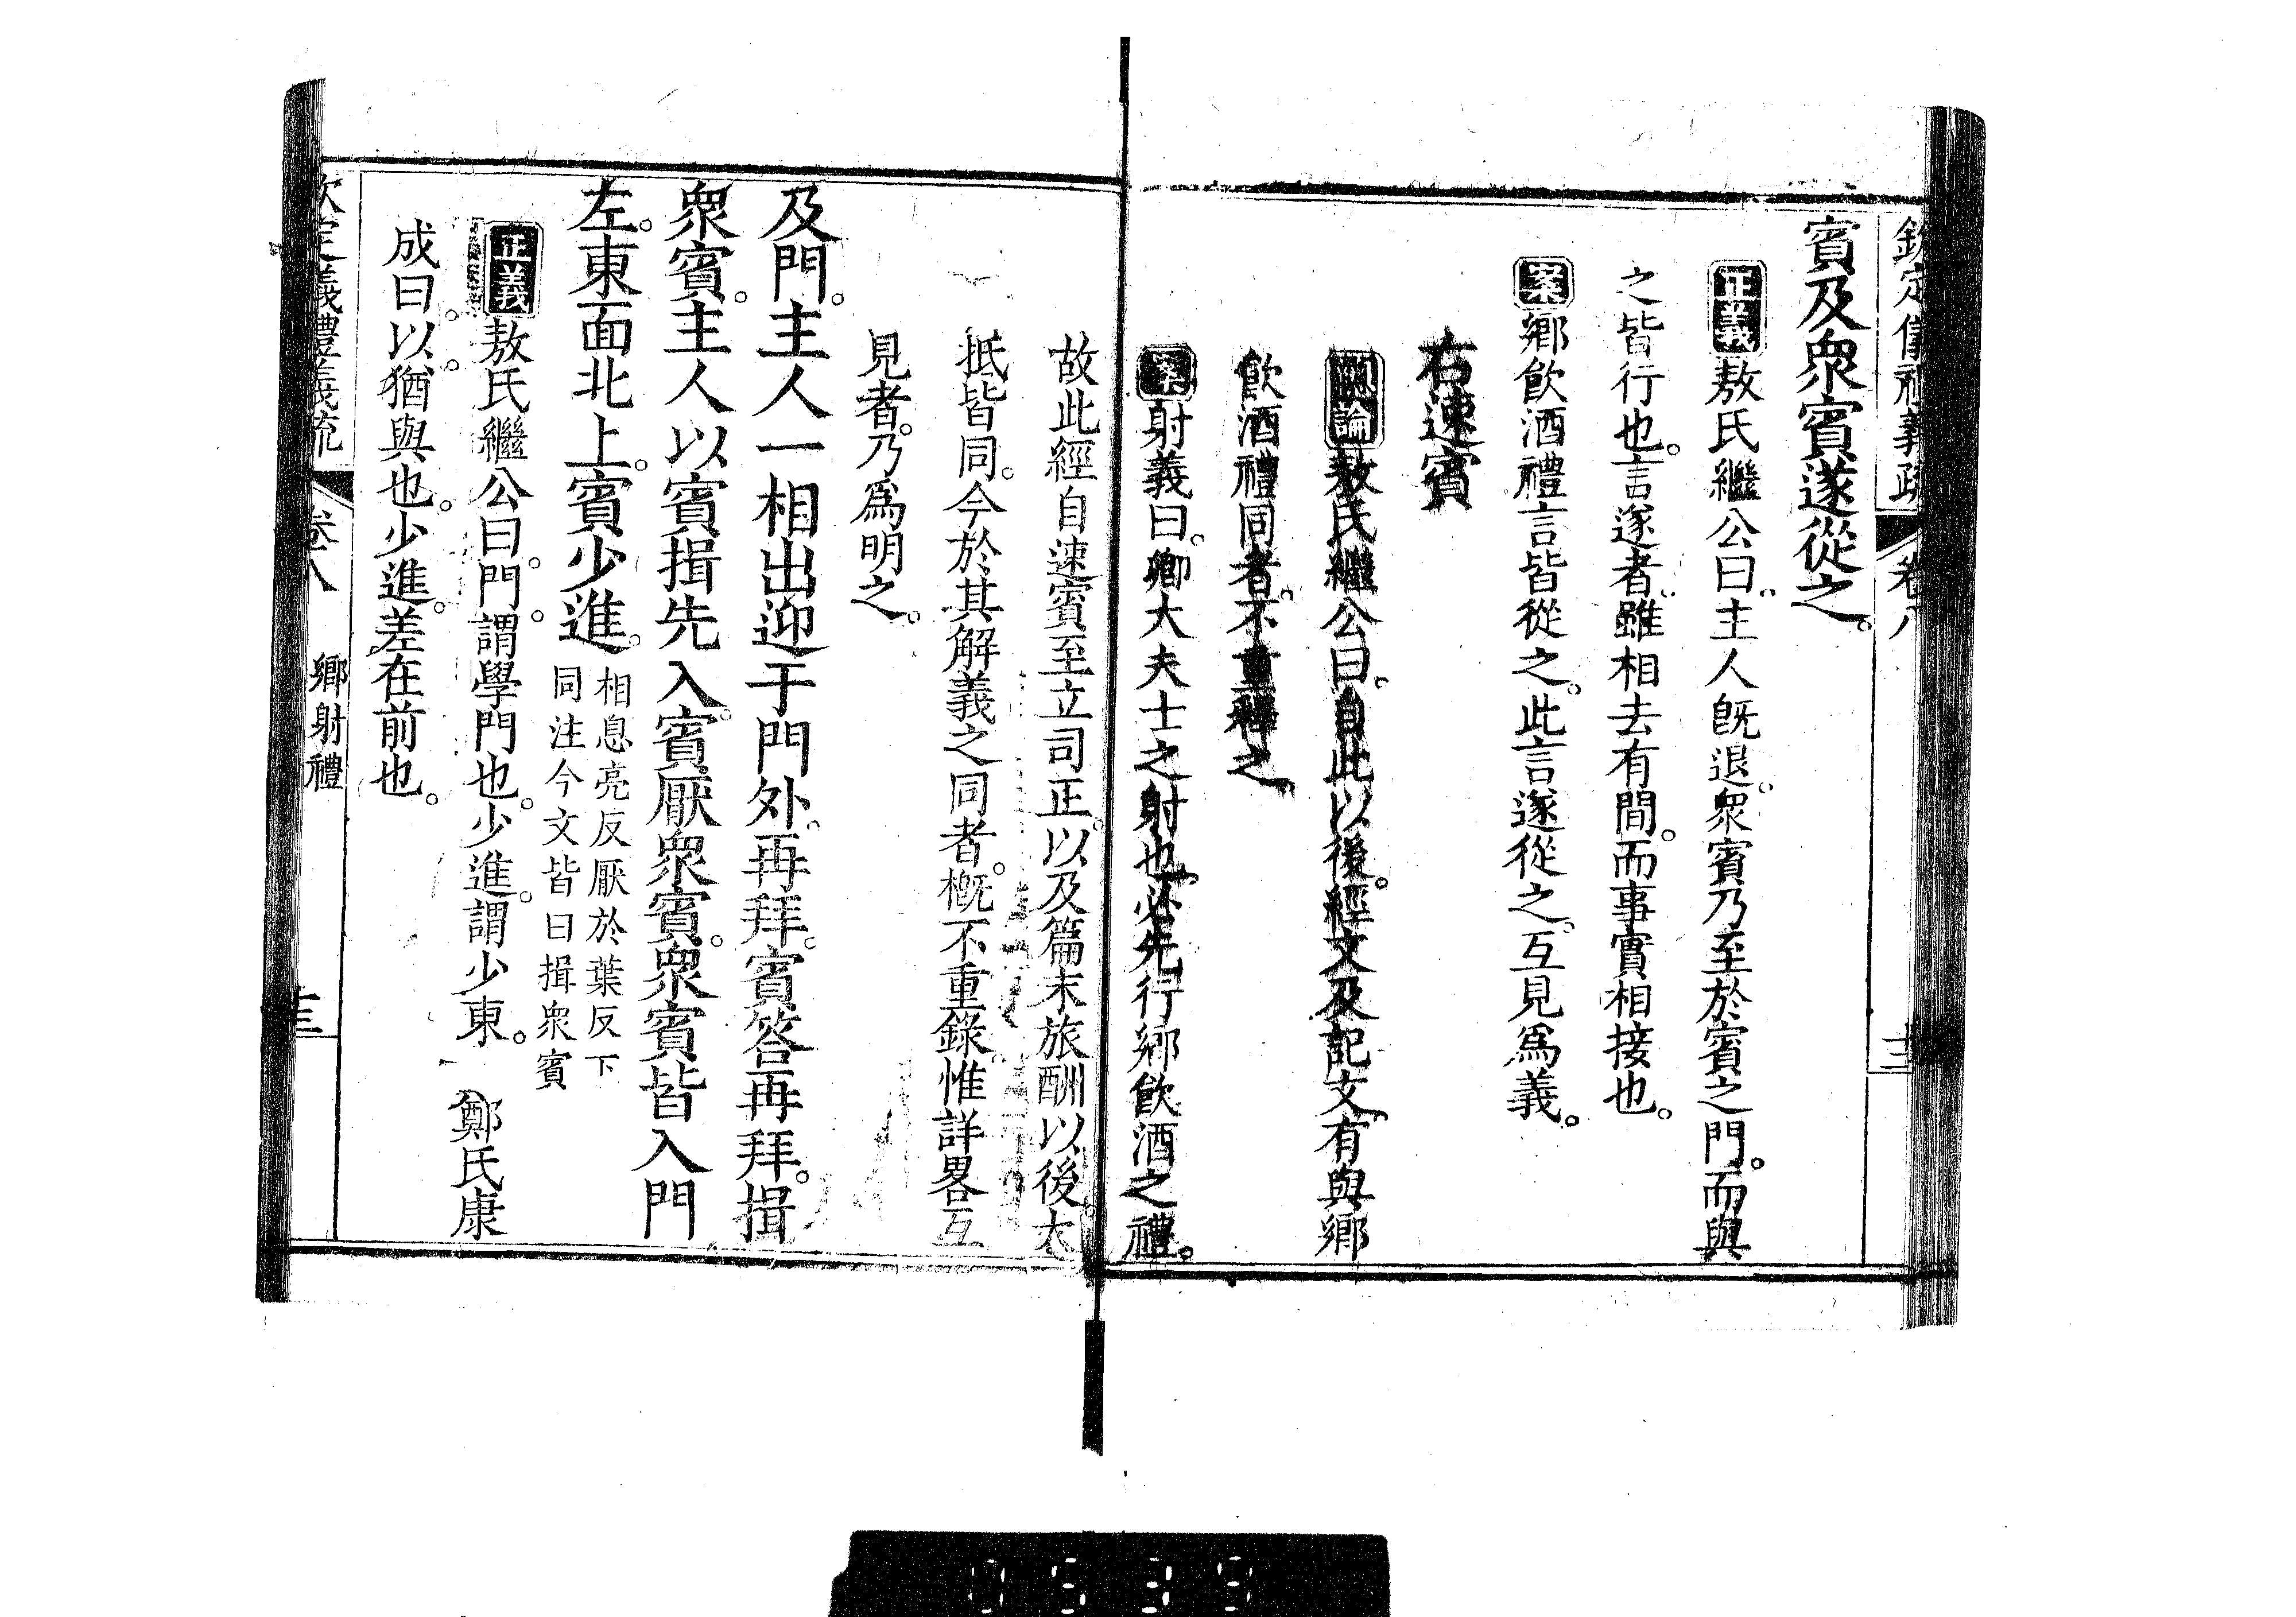 欽定儀禮義疏 卷八
賓及眾賓遂從之。
正義敖氏繼公曰。主人旣退。眾賓乃至於賓之門。而與
之皆行也。言遂者。雖相去有間。而事實相接也。
案鄉飮酒禮言皆從之。此言遂從之。互見爲義。
右速賓
通論敖氏繼公曰。自此以後。經文及記文。有與鄉
飮酒禮同者。不重釋之。
案射義曰。卿大夫士之射也。必先行鄉飮酒之禮。
故此經自速賓至立司正。以及篇末旅酬以後。大
抵皆同。今於其解義之同者。槪不重錄。惟詳畧互
見者。乃爲明之。
及門。主人一相出迎于門外。再拜。賓答再拜。揖
眾賓。主人以賓揖先入。賓厭眾賓。眾賓皆入門
左。東面北上。賓少進。相息亮反厭於葉反下
同注今文皆曰揖眾賓
正義敖氏繼公曰。門。謂學門也。少進。謂少東。 鄭氏康
成曰。以。猶與也。少進。差在前也。
欽定義禮義疏 卷八 鄉射禮 十三